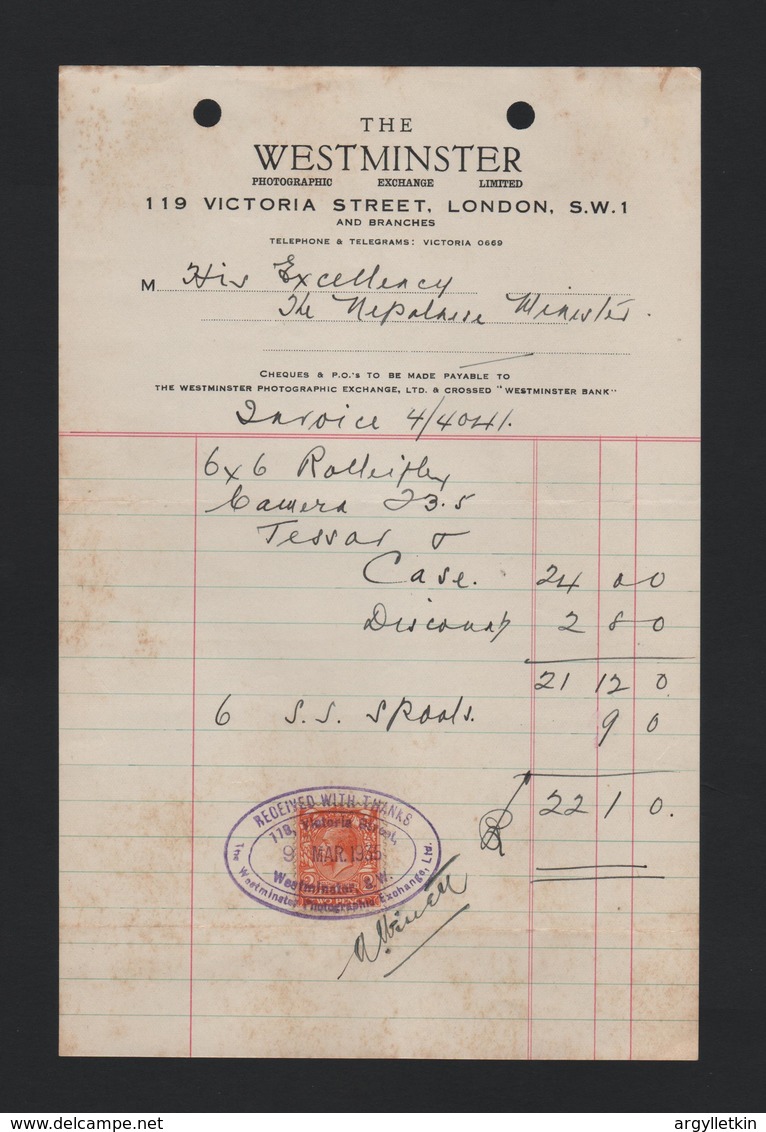 THE
WESTMINSTER
PHOTOGRAPHIC EXCHANGE LIMITED
119 VICTORIA STREET, LONDON, S.W.1
AND BRANCHES
TELEPHONE & TELEGRAMS: VICTORIA 0669
M His Excellency
The Nepalnese Minister.
CHEQUES & P.O.'s TO BE MADE PAYABLE TO
THE WESTMINSTER PHOTOGRAPHIC EXCHANGE, LTD. & CROSSED "WESTMINSTER BANK"
Invoice 4/4041.
6x6 Rolleiflex
Camera F3.5
Tessar &
Case. 24 0 0
Discount 2 8 0
21 12 0
6 S.S. Spools. 9 0
22 1 0.
RECEIVED WITH THANKS
119, Victoria Street,
9 MAR. 1935
Westminster, S.W.
The Westminster Photographic Exchange, Ltd.
TWO PENCE
www.delcampe.net
argylletkin